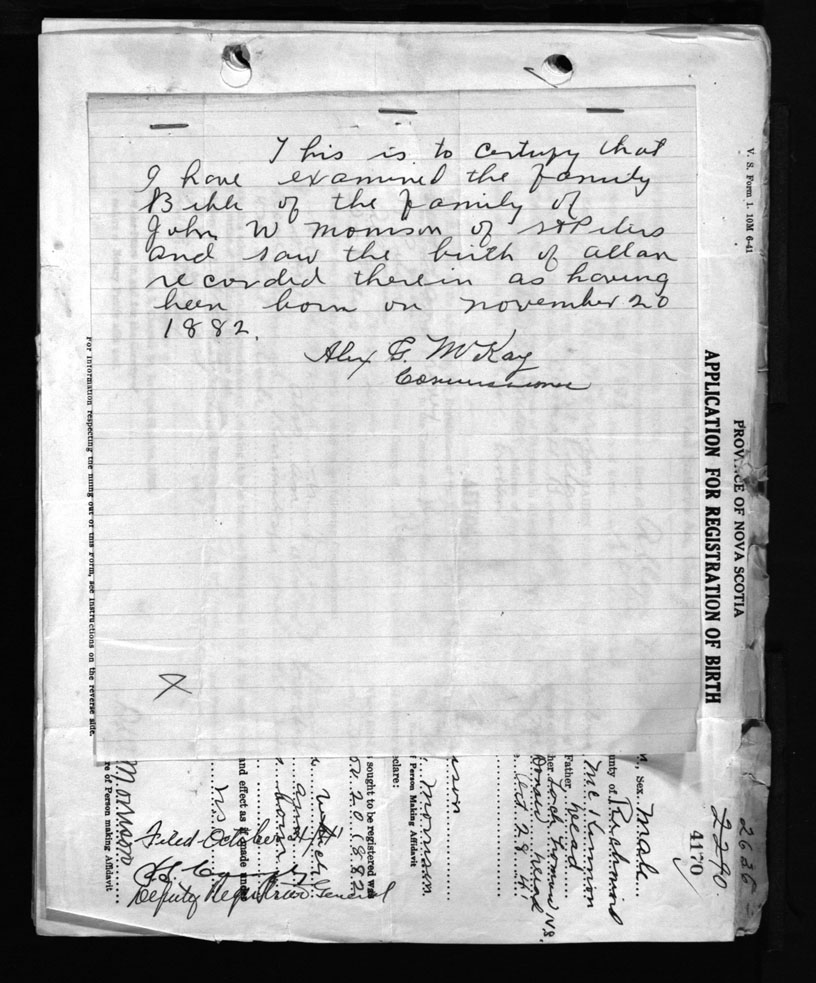 This is to certify that
I have examined the family
Bible of the family of
John W Morrison of St Peters
and saw the birth of allan
recorded therein as having
been born on november 20
1882.
Alex G. McKay
Commissioner
V. S. Form 1. 10M 6-41
PROV...CE OF NOVA SCOTIA
APPLICATION FOR REGISTRATION OF BIRTH
2626
2290.
4170
Sex. Male
unty of Richmond
McKinnon
Father, head
her Loch Lomond N.S.
Donald head
Oct 28 41
ison
Morrison
Person Making Affidavit
clare:
sought to be registered was
ov. 20 1882
and effect as if made und
N S
Filed October 31/41
Deputy Registrar General
Morrison
re of Person making Affidavit.
For information respecting the filling out of this Form, see instructions on the reverse side.